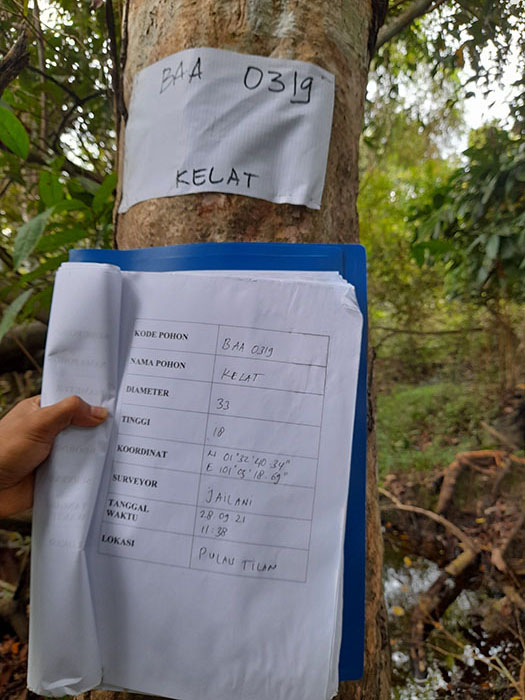 BAA 0319
KELAT
KODE POHON BAA 0319
NAMA POHON KELAT
DIAMETER 33
TINGGI 18
KOORDINAT N 01°32'40.34"
E 101°05'18.69"
SURVEYOR JAILANI
TANGGAL 28 09 21
WAKTU 11:38
LOKASI PULAU TILAN